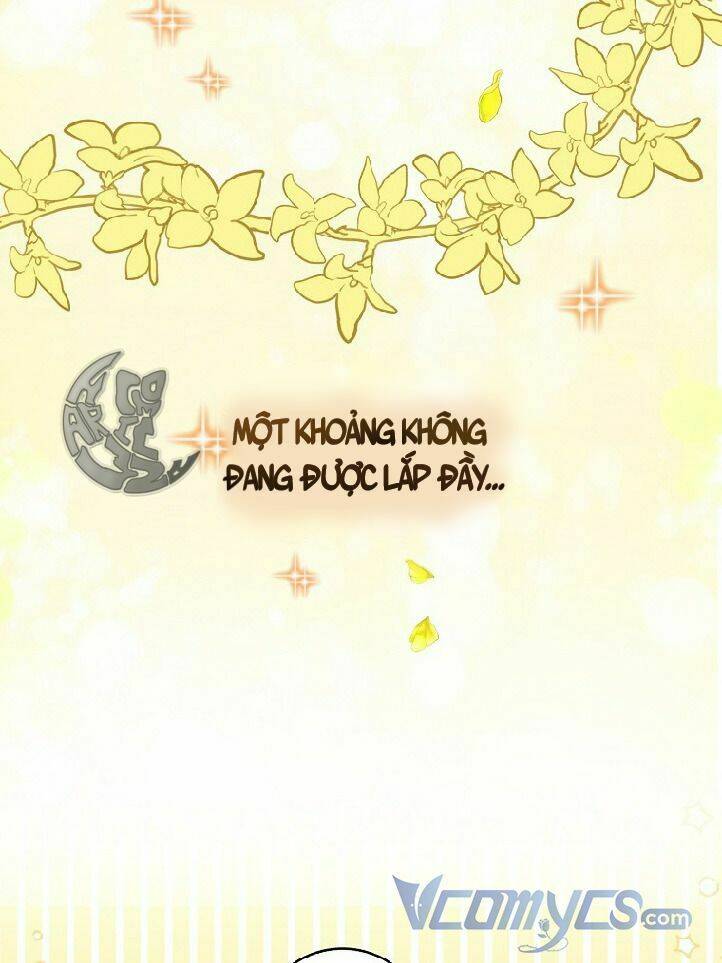 MỘT KHOẢNG KHÔNG
ĐANG ĐƯỢC LẮP ĐẦY...
VCOMYCS.com